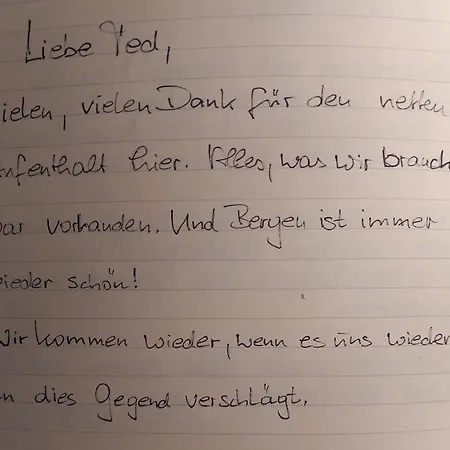 Liebe Ted,
ielen, vielen Dank für den netten
ufenthalt hier. Alles, was wir brauch
ar vorhanden. Und Bergen ist immer
ieder schön!
Wir kommen wieder, wenn es uns wieder
n dies Gegend verschlägt.